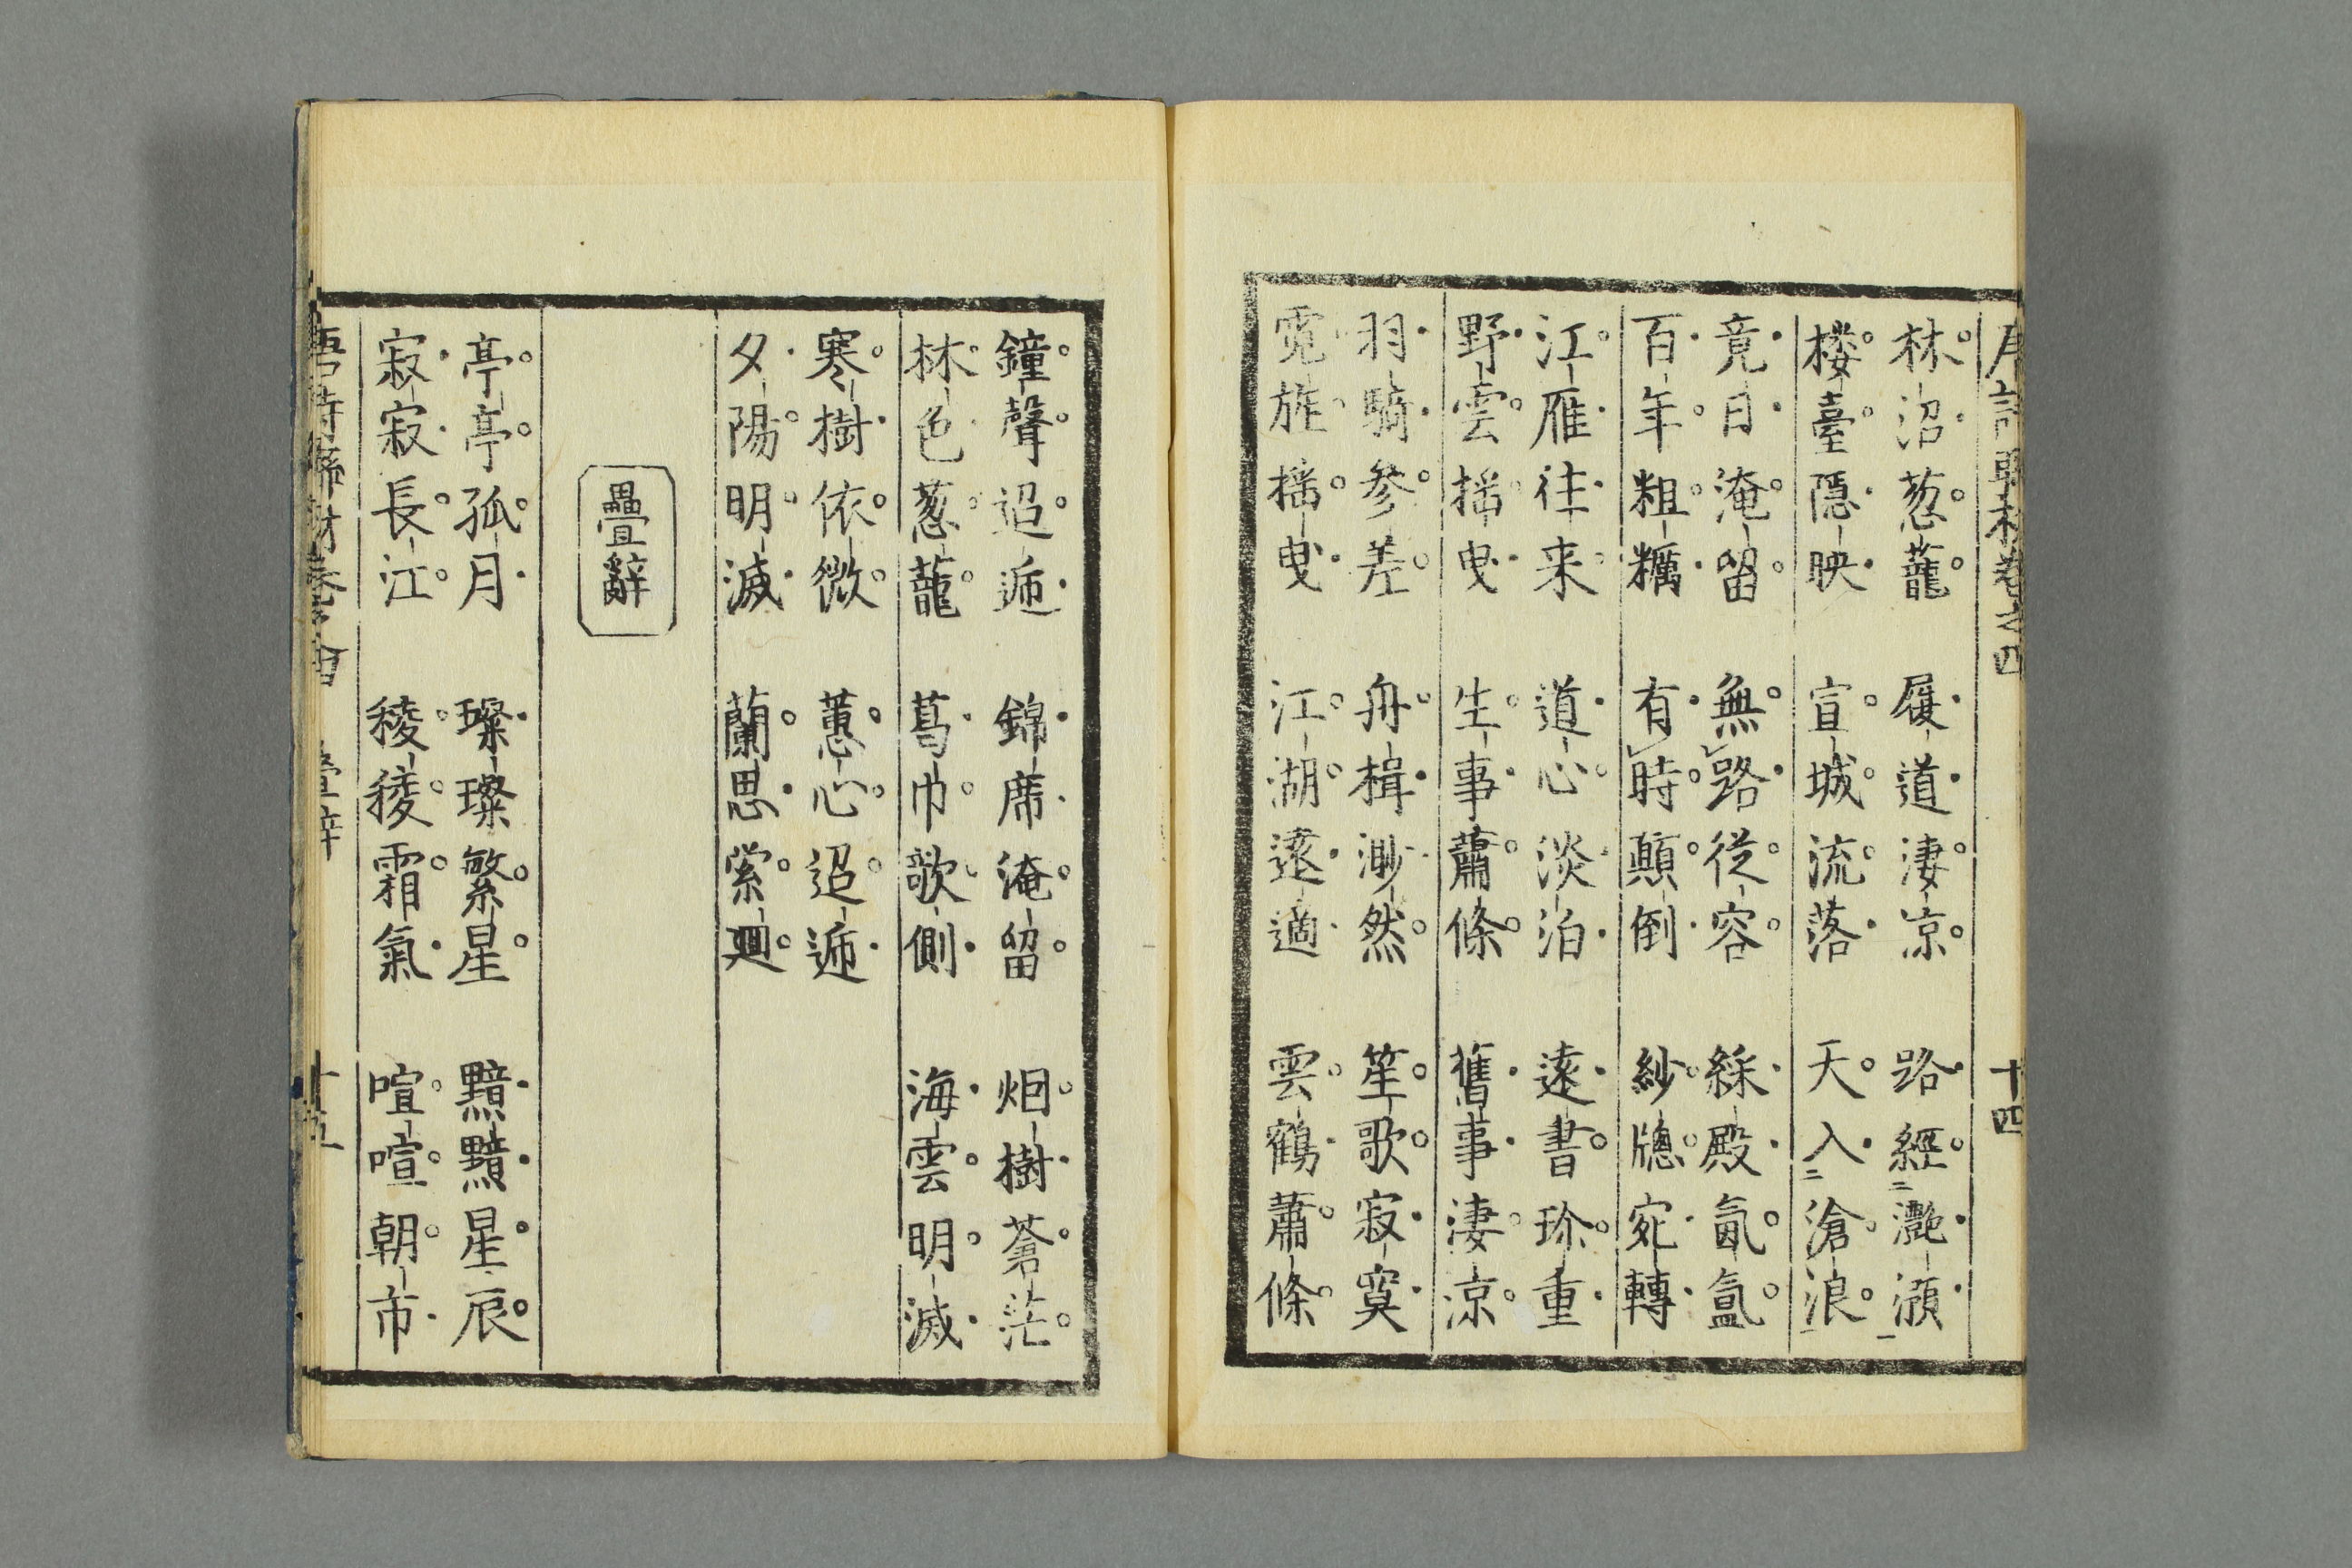 林沼葱蘢　屐道淒凉　路經灔澦
楼臺隱映　宣城流落　天入滄浪
竟日淹留　無路從容　綵殿氤氲
百年粗糲　有時顛倒　紗牕宛轉
江雁往来　道心淡泊　遠書珍重
野雲揺曳　生事蕭條　舊事淒涼
羽騎參差　舟楫渺然　笙歌寂寞
霓旌揺曳　江湖遠適　雲鶴蕭條
鐘聲迢遞　錦席淹留　烟樹蒼茫
林色葱蘢　葛巾欹側　海雲明滅
寒樹依微　蕙心迢遞
夕陽明滅　蘭思縈廻
疊辭
亭亭孤月　璨璨繁星　黯黯星辰
寂寂長江　稜稜霜氣　喧喧朝市